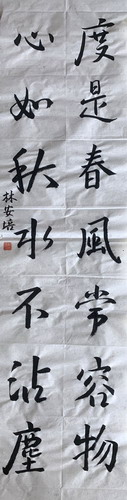 度是春風常容物
心如秋水不沾塵
林安培